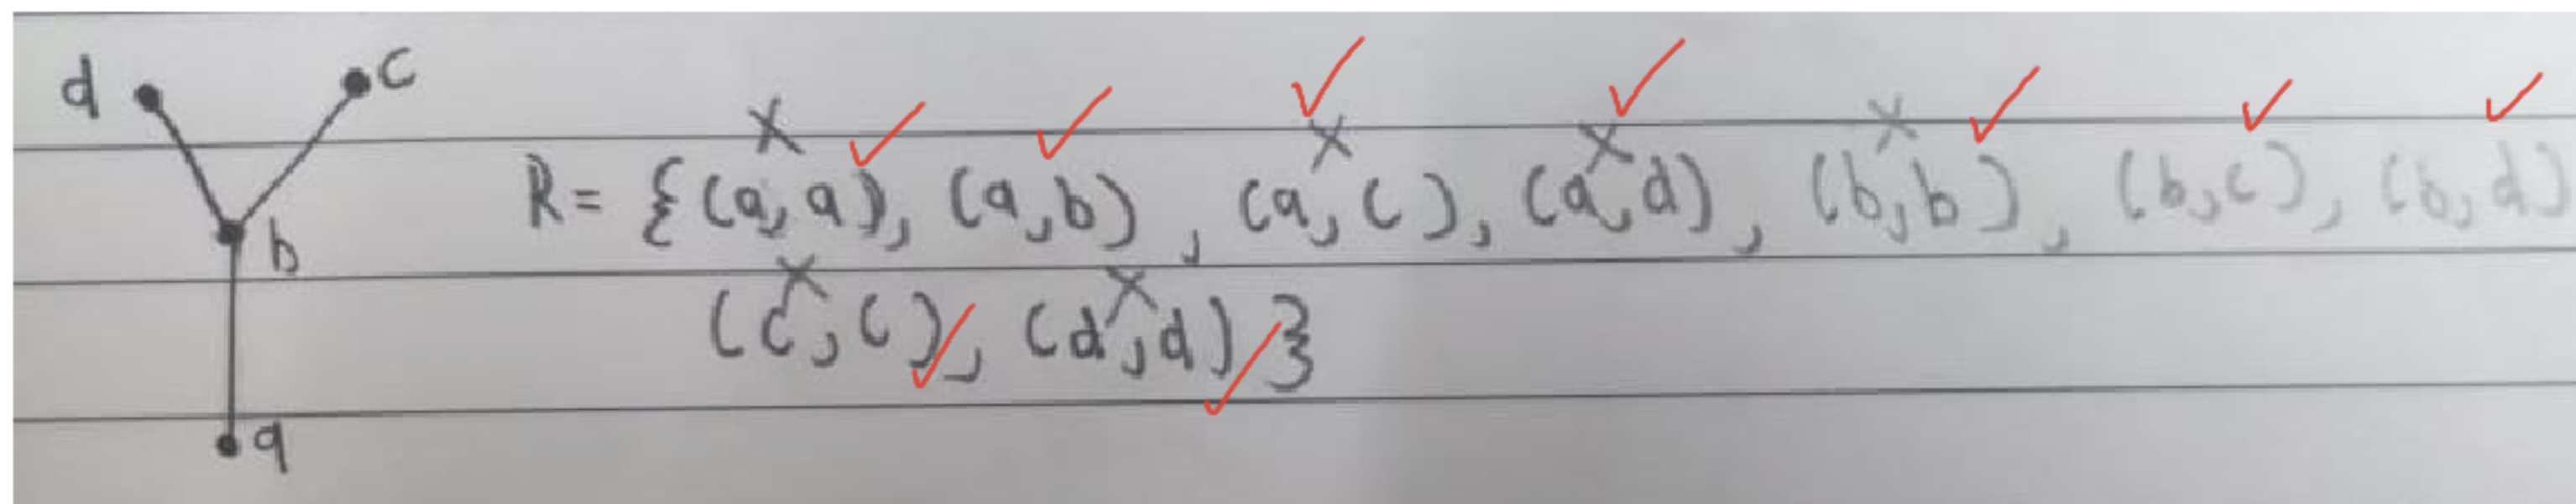 d c
R = {(a,a), (a,b), (a,c), (a,d), (b,b), (b,c), (b,d)
b
(c,c), (d,d)}
a